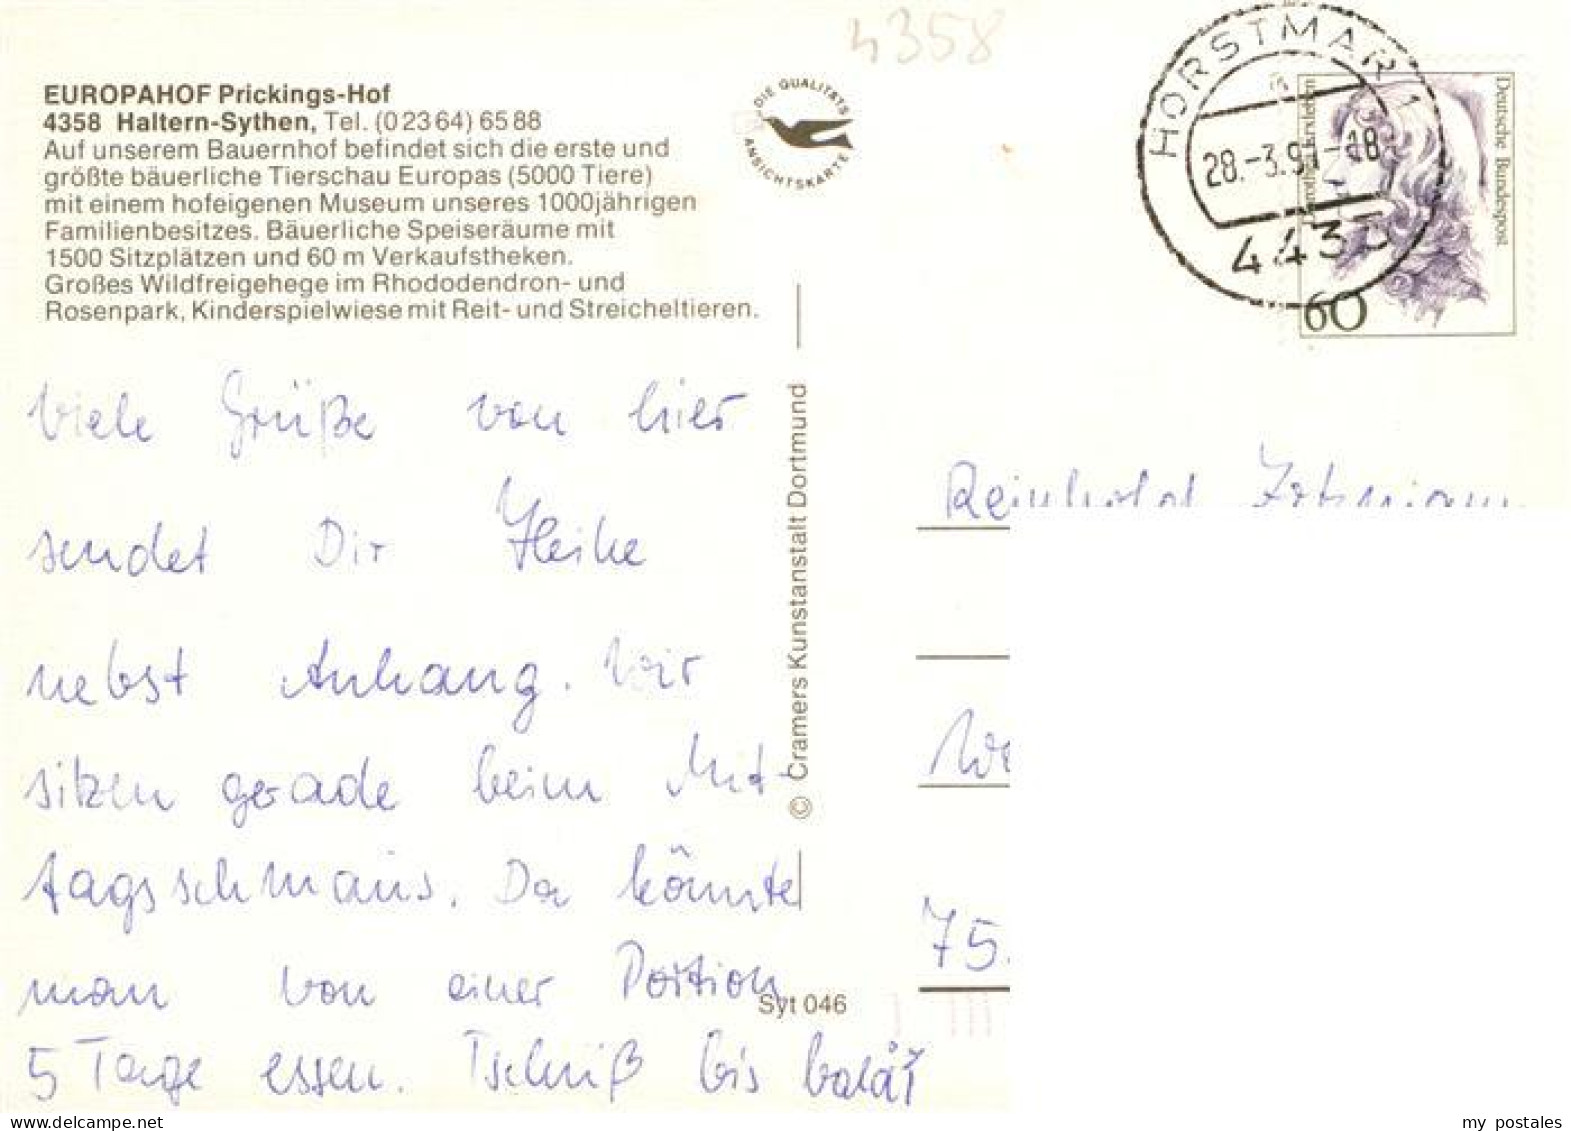 4358
EUROPAHOF Prickings-Hof
4358 Haltern-Sythen, Tel. (02364) 6588
Auf unserem Bauernhof befindet sich die erste und
größte bäuerliche Tierschau Europas (5000 Tiere)
mit einem hofeigenen Museum unseres 1000jährigen
Familienbesitzes. Bäuerliche Speiseräume mit
1500 Sitzplätzen und 60 m Verkaufstheken.
Großes Wildfreigehege im Rhododendron- und
Rosenpark, Kinderspielwiese mit Reit- und Streicheltieren.
DIE QUALITÄTS
ANSICHTSKARTE
HORSTMAR 1
28.-3.9
4435
Deutsche Bundespost
60
Viele Grüße von hier
sendet Dir Heike
nebst Anhang. Wir
sitzen gerade beim Mit-
tagsschmaus. Da könnte
man von einer Portion
5 Tage essen. Tschüß bis
© Cramers Kunstanstalt Dortmund
Syt 046
Reinhold
75.
my postales